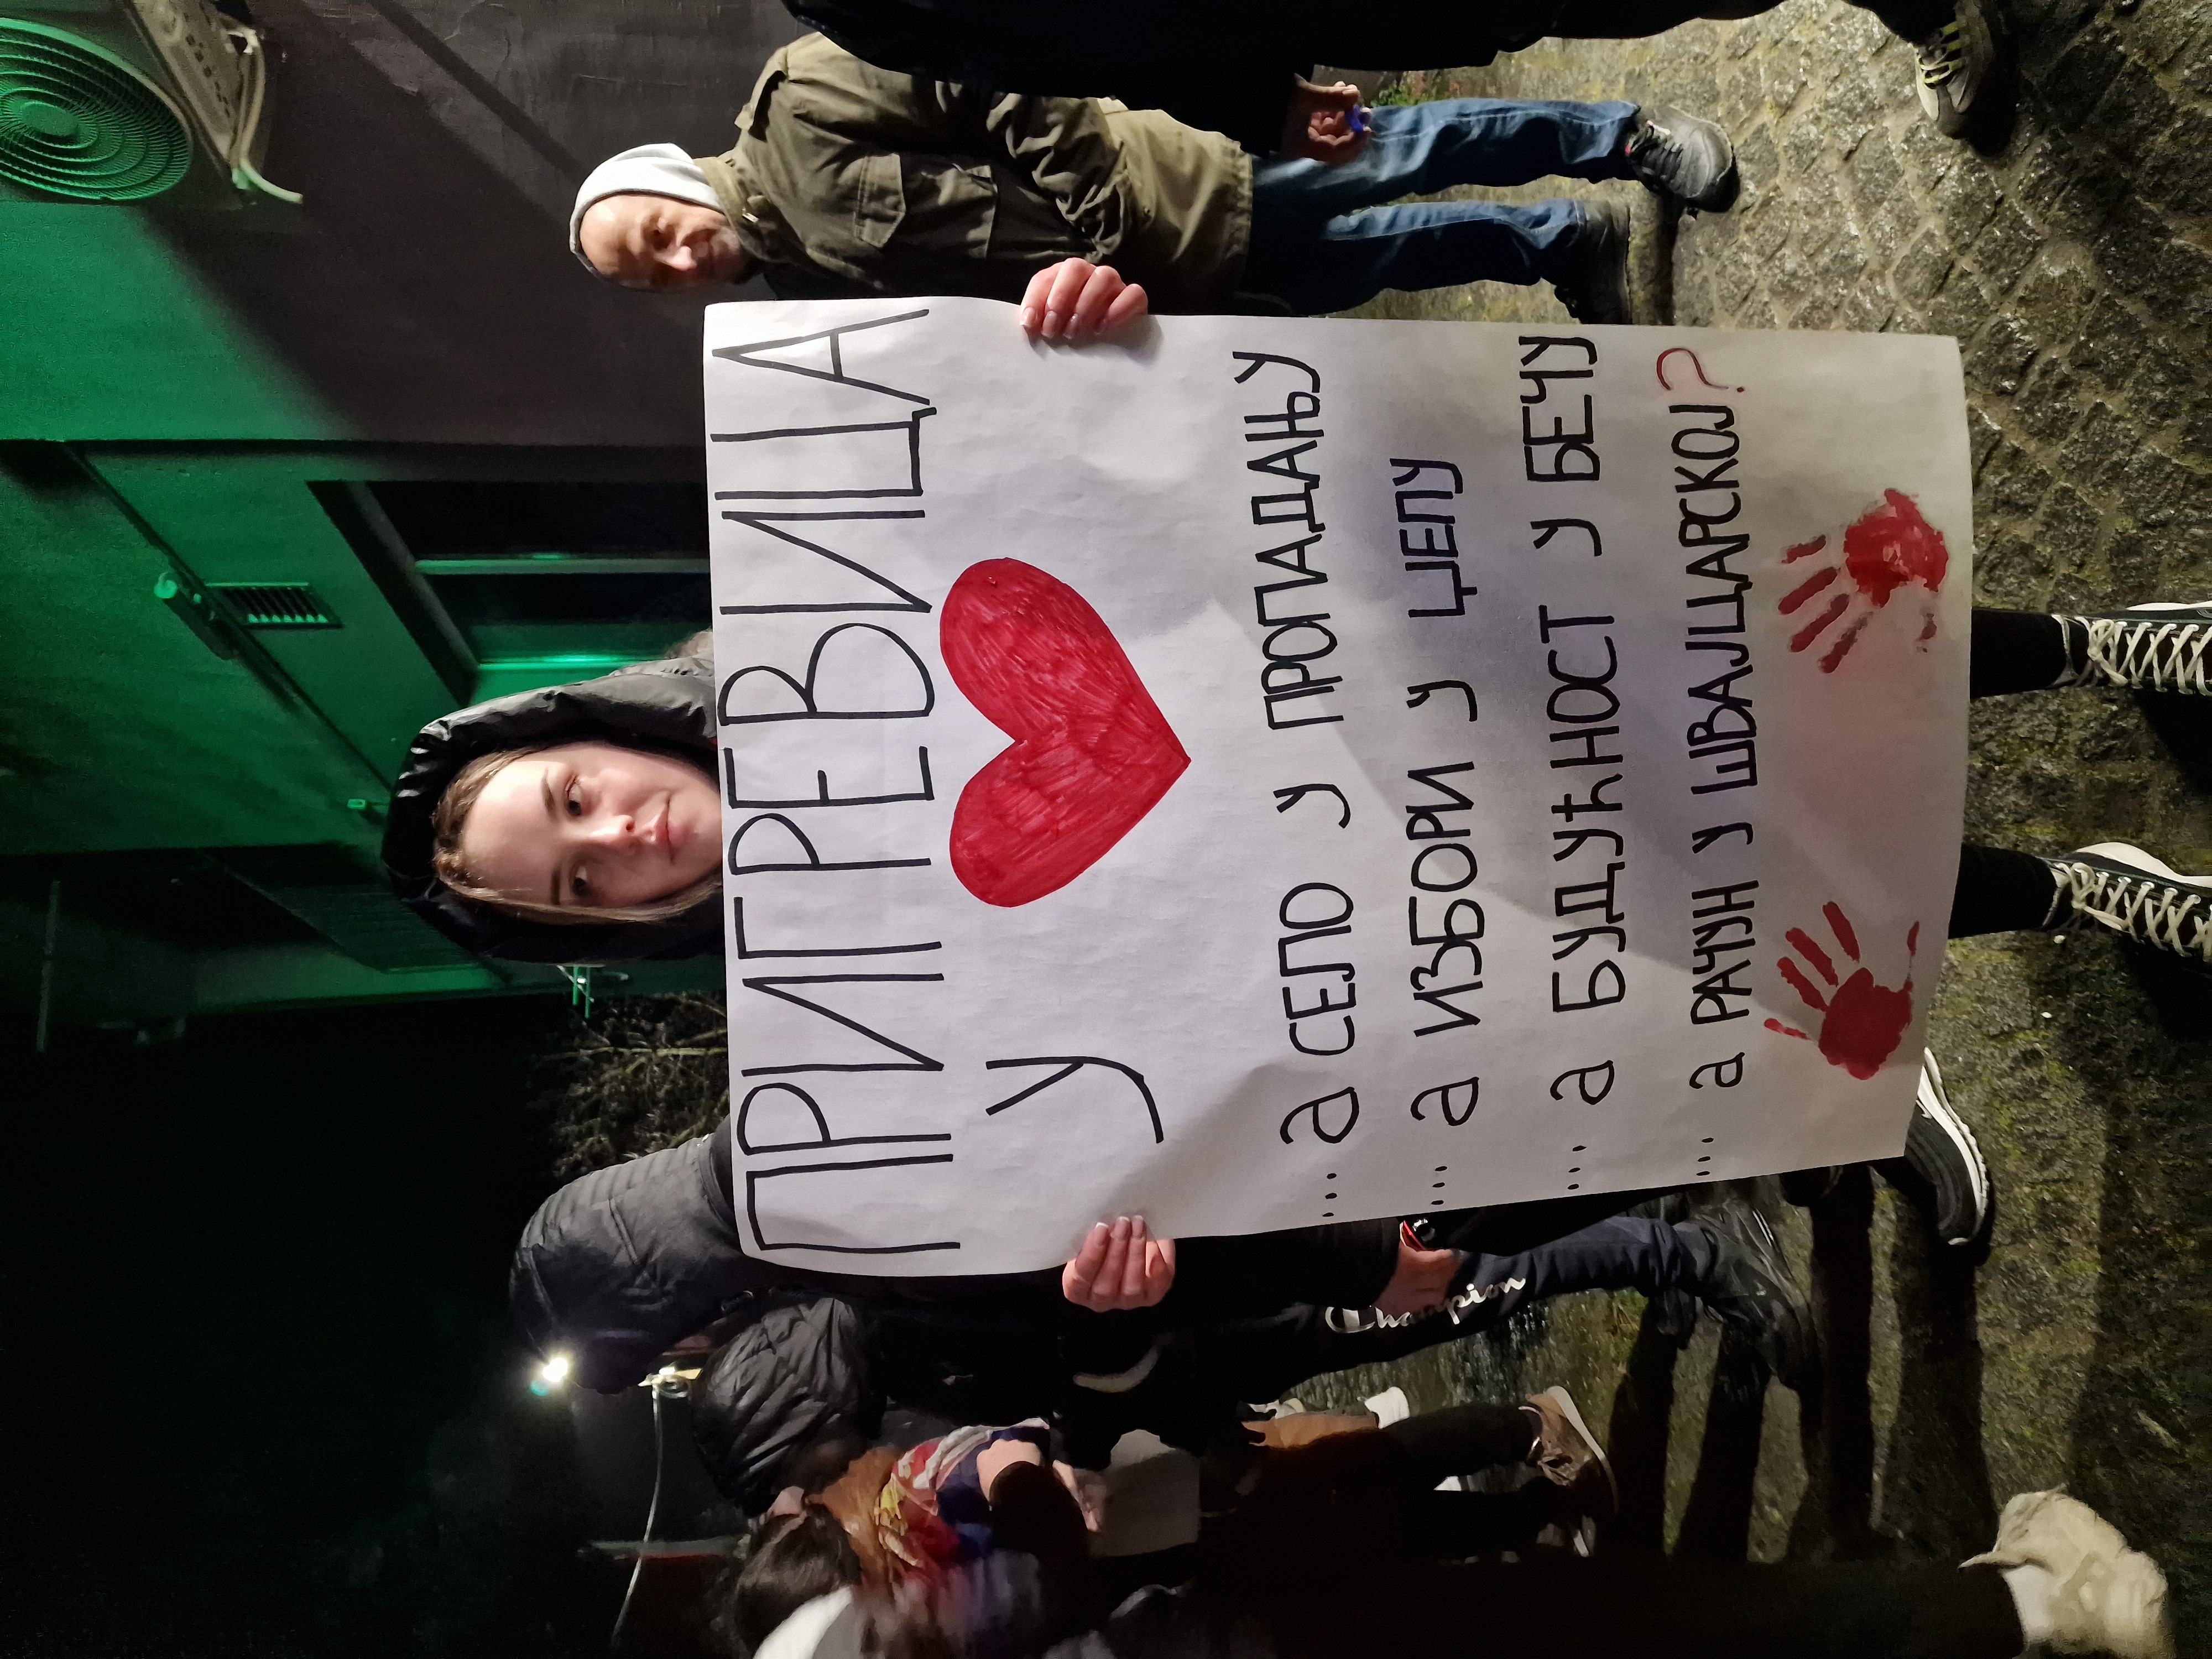 ПРИГРЕВИЦА
У
... а СЕЛО У ПРОПАДАЊУ
... а ИЗБОРИ У ЏЕПУ
... а БУДУЋНОСТ У БЕЧУ
... а РАЧУН У ШВАЈЦАРСКОЈ?
Champion